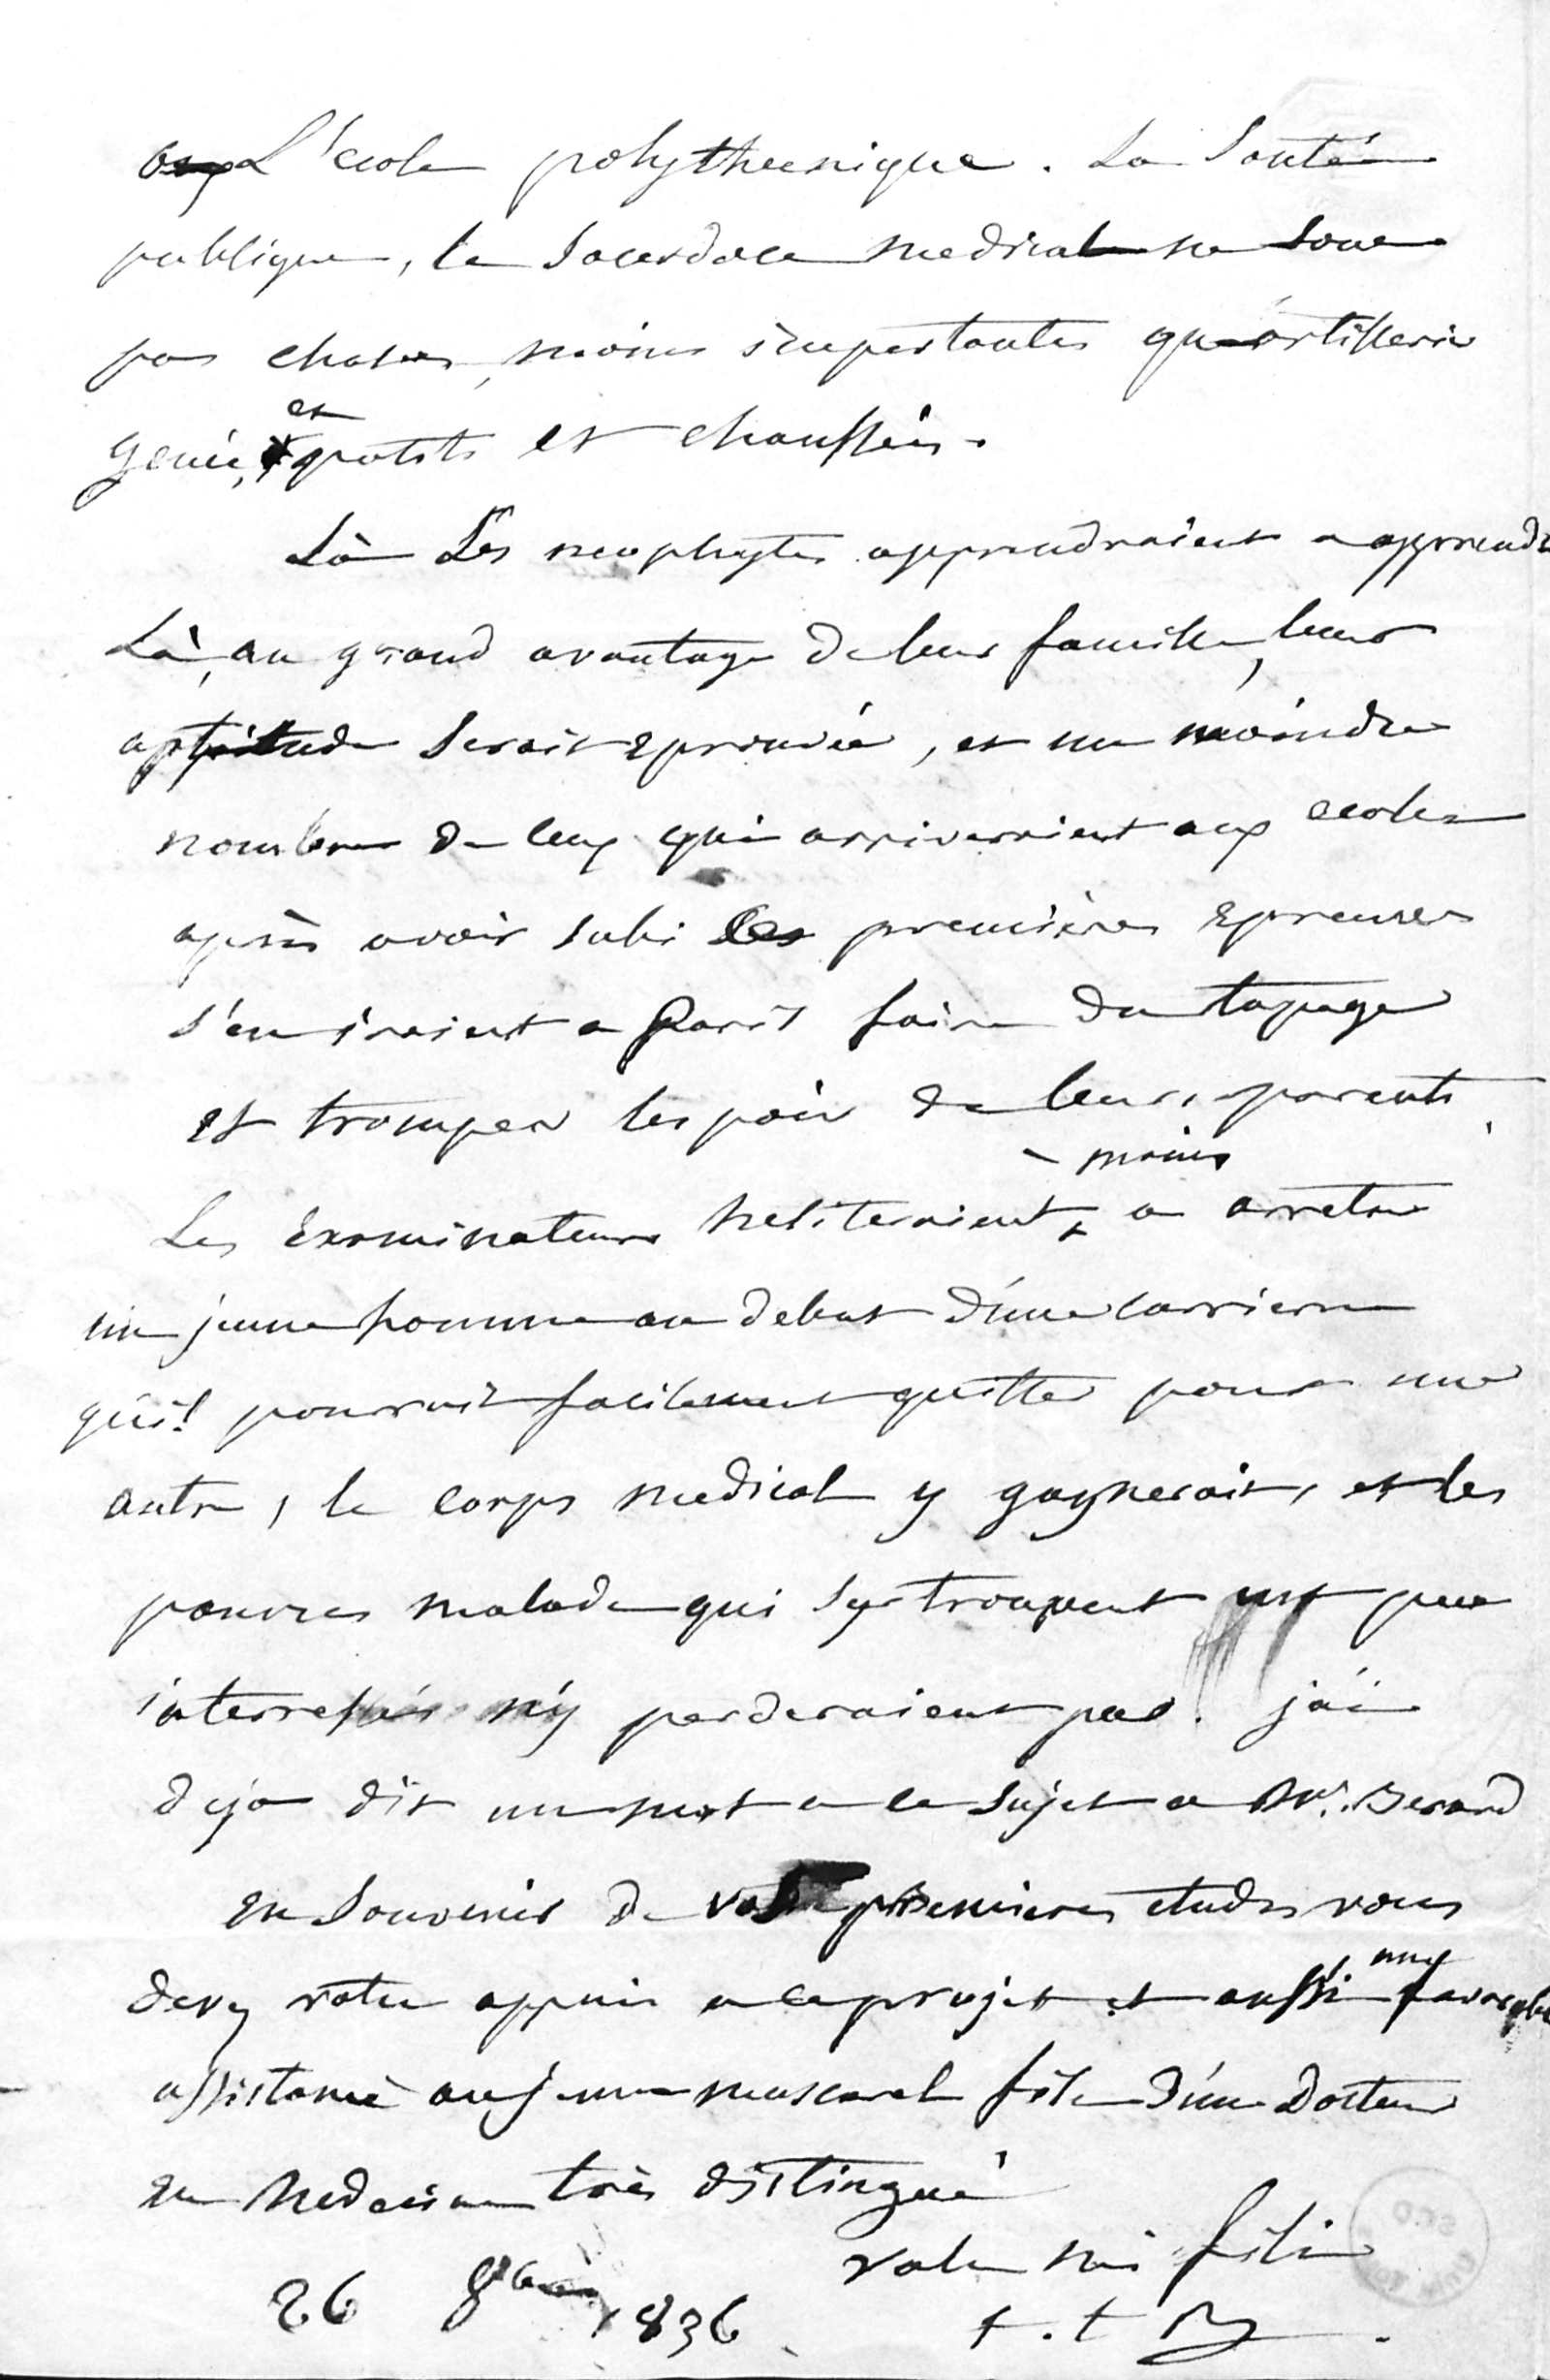 L'ecole polythecnique. La Santé
publique, le Sacerdoce medical ne sont
pas choses, moins importantes qu'artillerie
genie, et ponts et chaussées.
Là Les neophytes apprendraient a apprendre
Là, au grand avantage de leur famille, leur
aptitude serait eprouvée, et un moindre
nombre de ceux qui arriveraient aux ecoles
après avoir subi les premières epreuves
s'en iraient a Paris faire du tapage
et tromper l'espoir de leurs parents.
Les Examinateurs hesiteraient moins a arreter
un jeune homme au debut d'une carriere
qu'il pourroit facilement quitter pour une
autre, le corps medical y gagnerait, et les
pauvres malades qui s'y trouvent un peu
interressés n'y perderaient pas. j'ai
deja dit un mot a ce sujet a Mr. Berard
En Souvenir de vos premieres etudes vous
devez votre appui a ce projet et aussi une favorable
assistance au jeune mascarel fils d'un Docteur
en Medecine très distingué
vale mi fili
26 8bre 1836
t. t. B